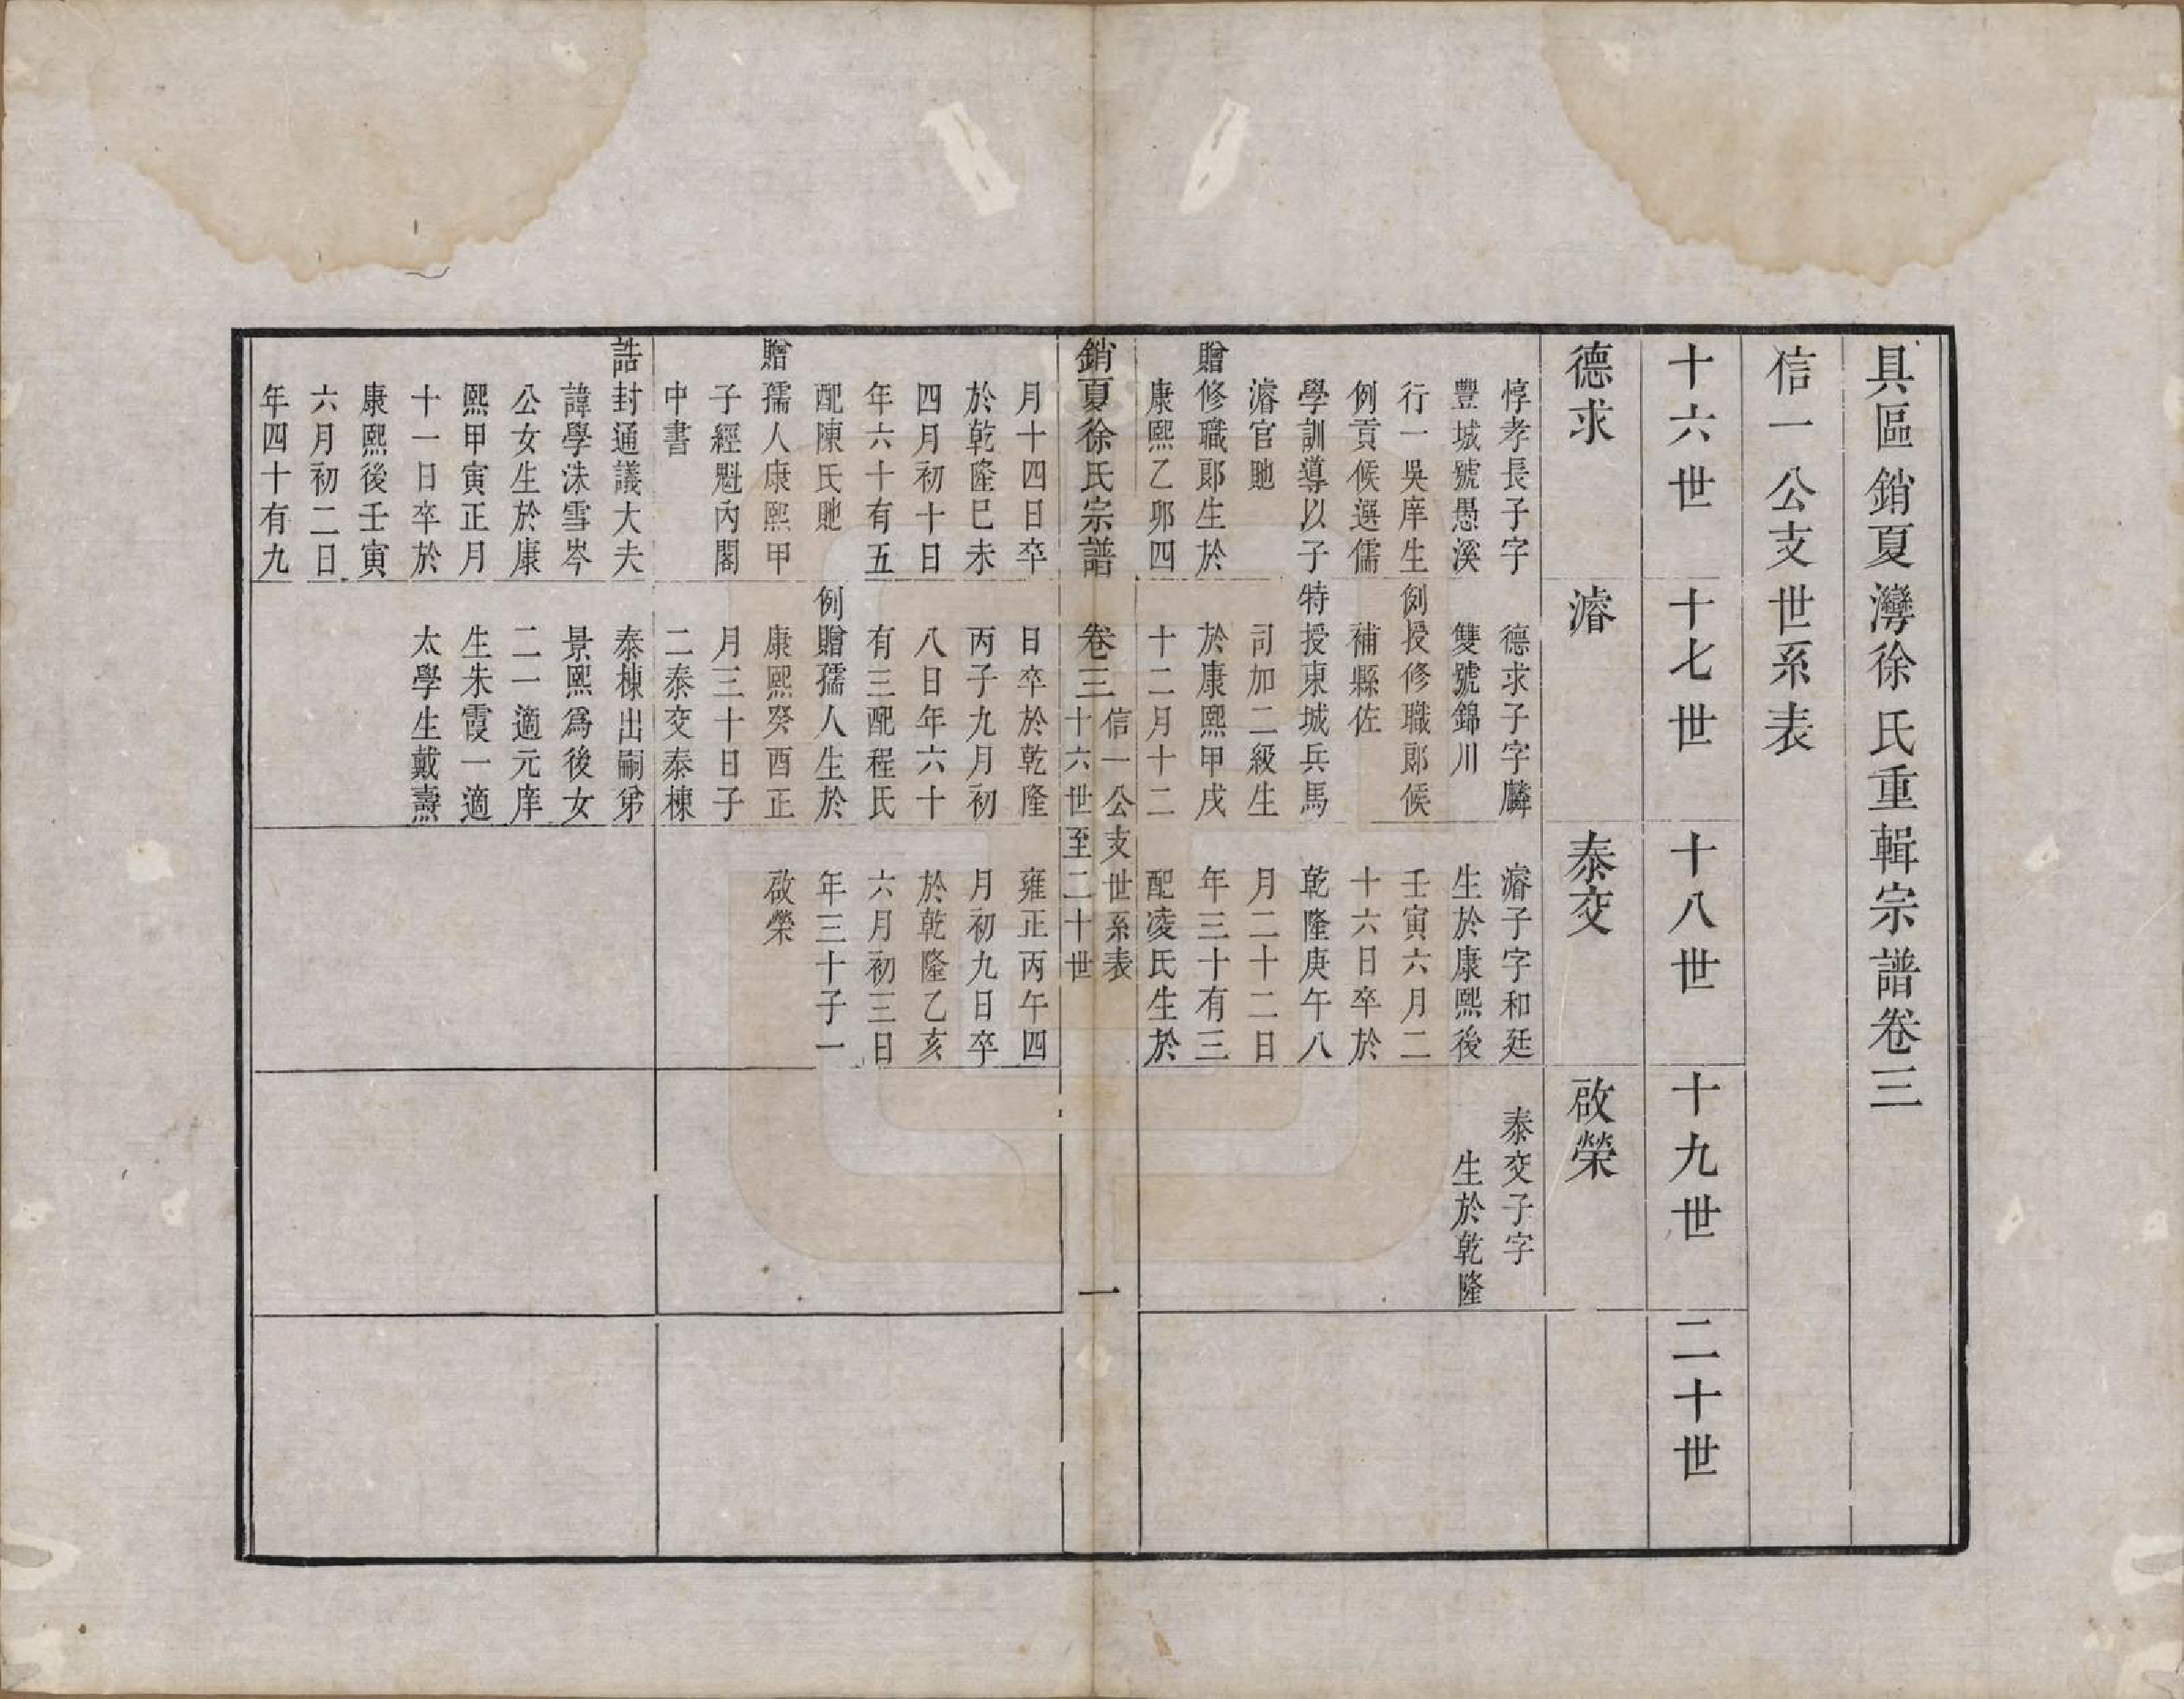 具區銷夏灣徐氏重輯宗譜卷三
信一公支世系表
十六世
十七世
十八世
十九世
二十世
德求
惇孝長子字
豐城號愚溪
行一吳庠生
例貢候選儒
學訓導以子
濬官貤
贈修職郎生於
康熙乙卯四
月十四日卒
於乾隆巳未
四月初十日
年六十有五
配陳氏貤
贈孺人康熙甲
子經魁內閣
中書
誥封通議大夫
諱學洙雪岑
公女生於康
熙甲寅正月
十一日卒於
康熙後壬寅
六月初二日
年四十有九
濬
德求子字麟
雙號錦川
例授修職郎候
補縣佐
特授東城兵馬
司加二級生
於康熙甲戌
十二月十二
日卒於乾隆
丙子九月初
八日年六十
有三配程氏
例贈孺人生於
康熙癸酉正
月三十日子
二泰交泰棟
泰棟出嗣弟
景熙爲後女
二一適元庠
生朱霞一適
太學生戴壽
泰交
濬子字和廷
生於康熙後
壬寅六月二
十六日卒於
乾隆庚午八
月二十二日
年三十有三
配凌氏生於
雍正丙午四
月初九日卒
於乾隆乙亥
六月初三日
年三十子一
啟榮
啟榮
泰交子字
生於乾隆
銷夏徐氏宗譜
卷三
信一公支世系表
十六世至二十世
一